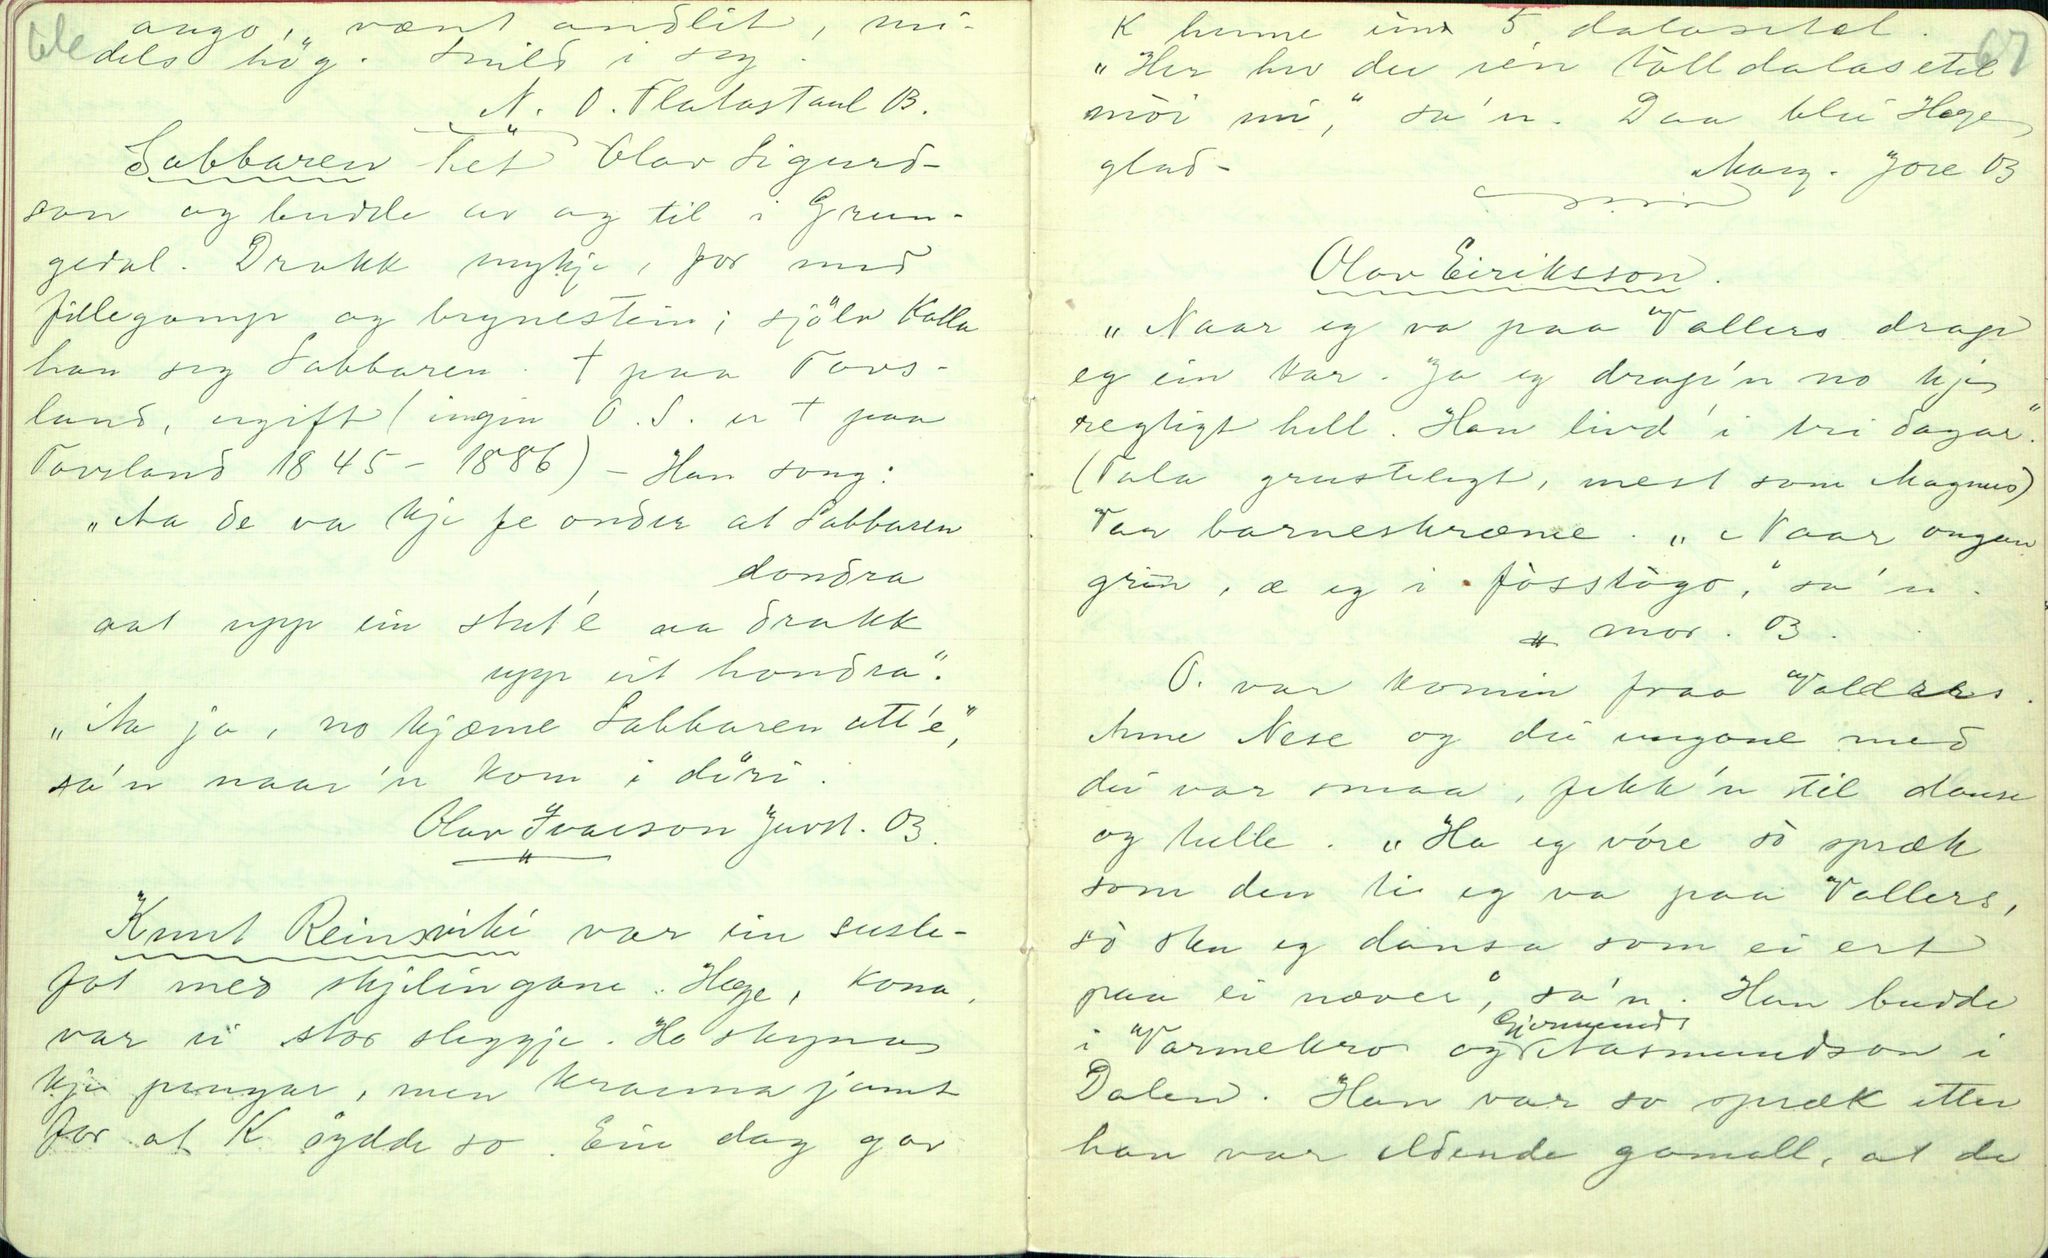 augo, vænt andlit, mi-
dels høg. Snild i seg.
N. O. Flatastaul 03.
Sabbaren het Olav Sigurd-
son og budde av og til i Grun-
gedal. Drakk mykje, for med
fillegamp og brynestein; sjölv kalla
han seg Sabbaren. † paa Tovs-
land, ugift (ingin O. S. er † paa
Tovsland 1845 - 1886) - Han song:
"Aa de va kje fe onder at Sabbaren
dondra
aat upp ein stut'e aa drakk
upp eit hondra".
"Aa ja, no kjæme Sabbaren att'e,"
sa'n naar'n kom i döri.
Olav Ivarson Juvst. 03.
Knut Reinsviki var ein susle-
fot med skjelingane. Hæge, kona,
var ei stor sleggje. Ho skyna
kje pengar, men krauna jamt
for at K öydde so. Ein dag gav
67
K henne ein 5 dalasetel.
"Her hev du ein tolldalasetel
möi mi," sa'n. Daa blei Hæge
glad-
Marg. Jore 03
Olav Eiriksson.
"Naar eg va paa Vallers drap
eg ein kar. Ja eg drap'n no kje
regtigt hell. Han livd' i tri dagar."
(Tala grusteligt, mest som Magnus)
Var barneskræme. "Naar ongan
grin, æ eg i fòsstògo," sa'n.
mor. 03.
O. var komin fraa Valdres.
Anne Nese og dei ungane med
dei var smaa, fekk'n til danse
og tulle. "Ha eg vóre so spræk
som den ti eg va paa Vallers,
so ska eg dansa som ei ert
paa ei næver", sa'n. Han budde
i Varmekro og Gjermund Aasmundson i
Dalen. Han var so spræk etter
han var eldende gamall, at de